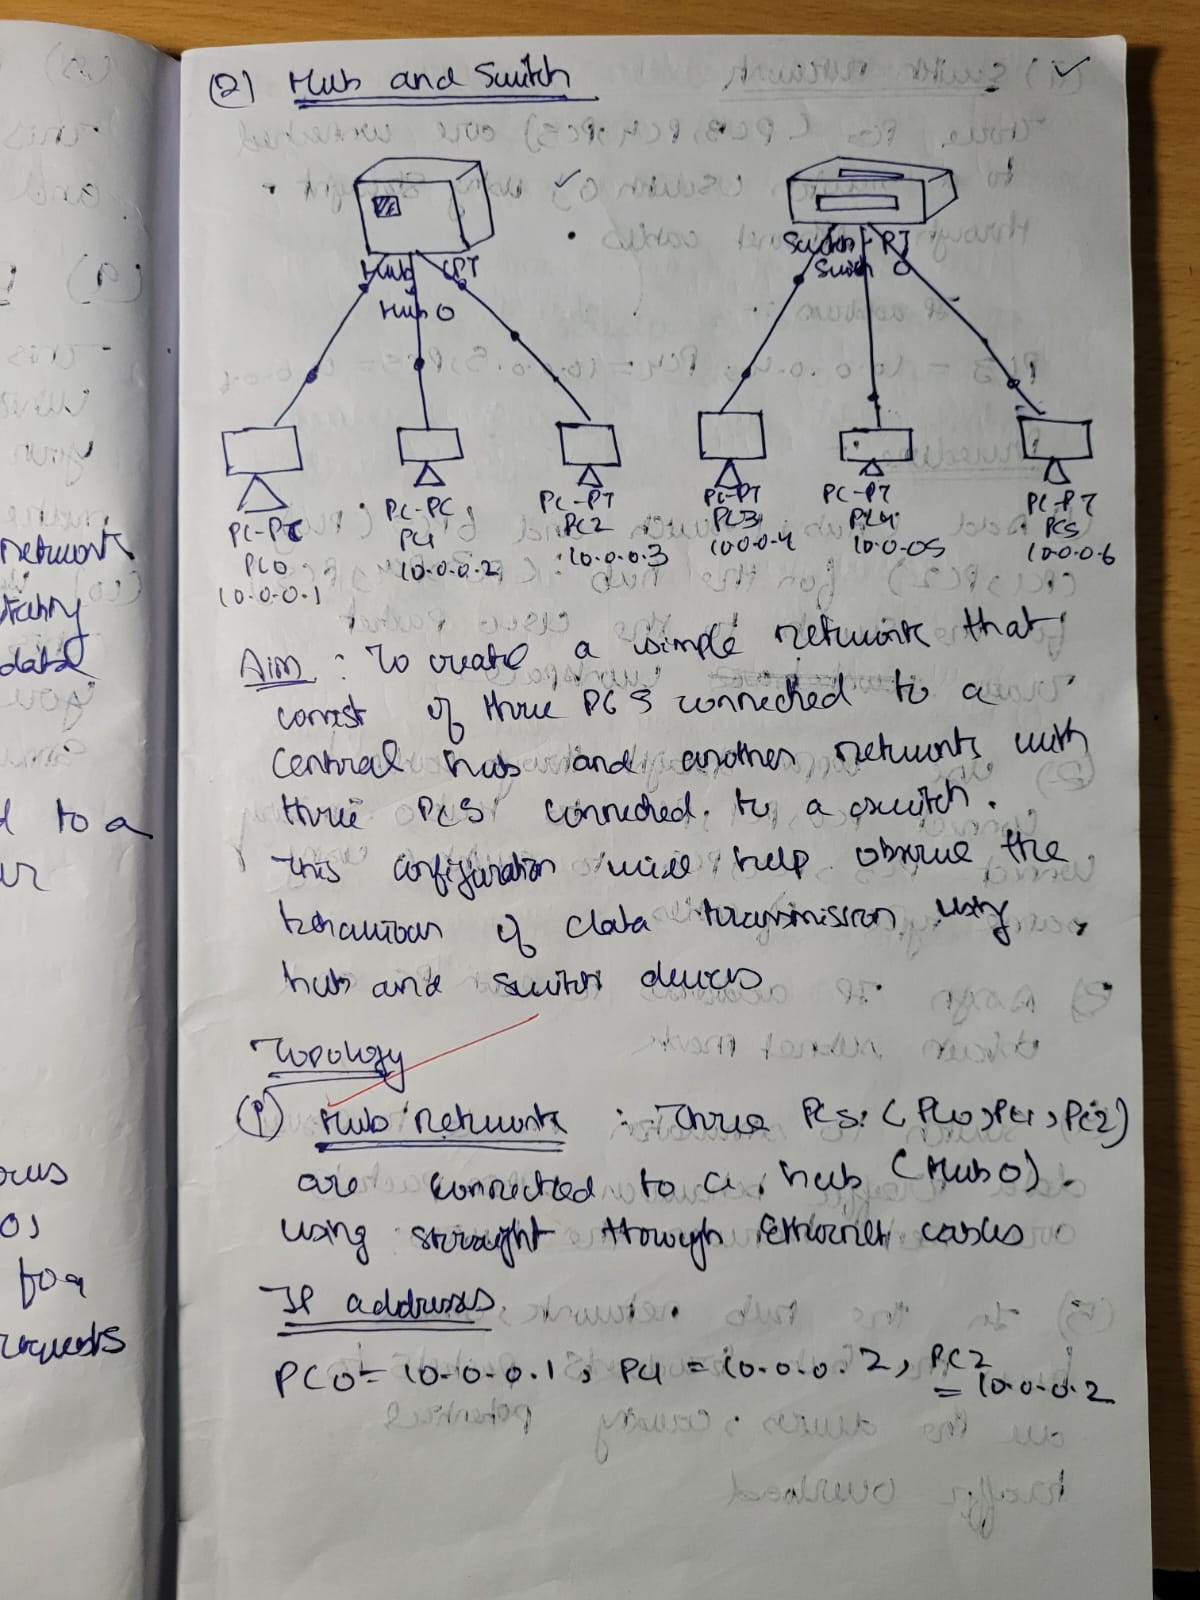 (2) Hub and Switch
Hub - PT
Hub 0
Switch - PT
Switch 0
PC-PT
PC0
10.0.0.1
PC-PC
PC1
10.0.0.2
PC-PT
PC2
10.0.0.3
PC-PT
PC3
10.0.0.4
PC-PT
PC4
10.0.05
PC-PT
PC5
10.0.0.6
Aim : To create a simple network that
consist of three PCS connected to a
central hub and another network with
three PCS connected to a switch.
This configuration will help observe the
behaviour of data transmission using
hub and switch devices
Topology
(1) Hub network : Three PCs. (PC0, PC1, PC2)
are connected to a hub (Hub 0).
using straight through Ethernet cables
IP addresses
PC0 = 10.0.0.1, PC1 = 10.0.0.2, PC2
= 10.0.0.2
network
data
to a
for
requests